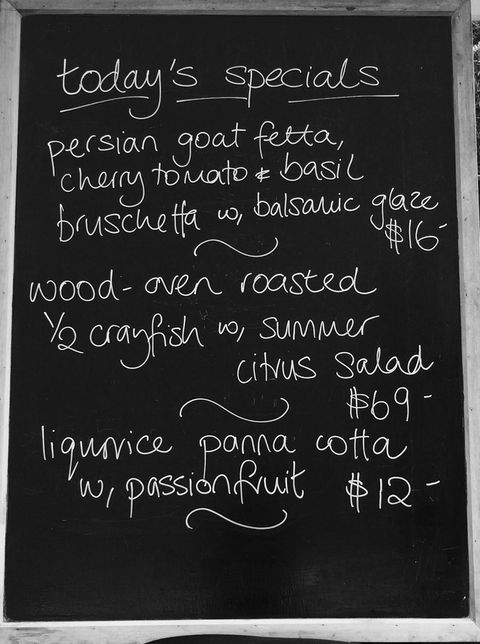 today's specials
persian goat fetta,
cherry tomato & basil
bruschetta w, balsamic glaze
$16-
wood-oven roasted
1/2 crayfish w, summer
citrus salad
$69-
liquorice panna cotta
w, passionfruit $12-